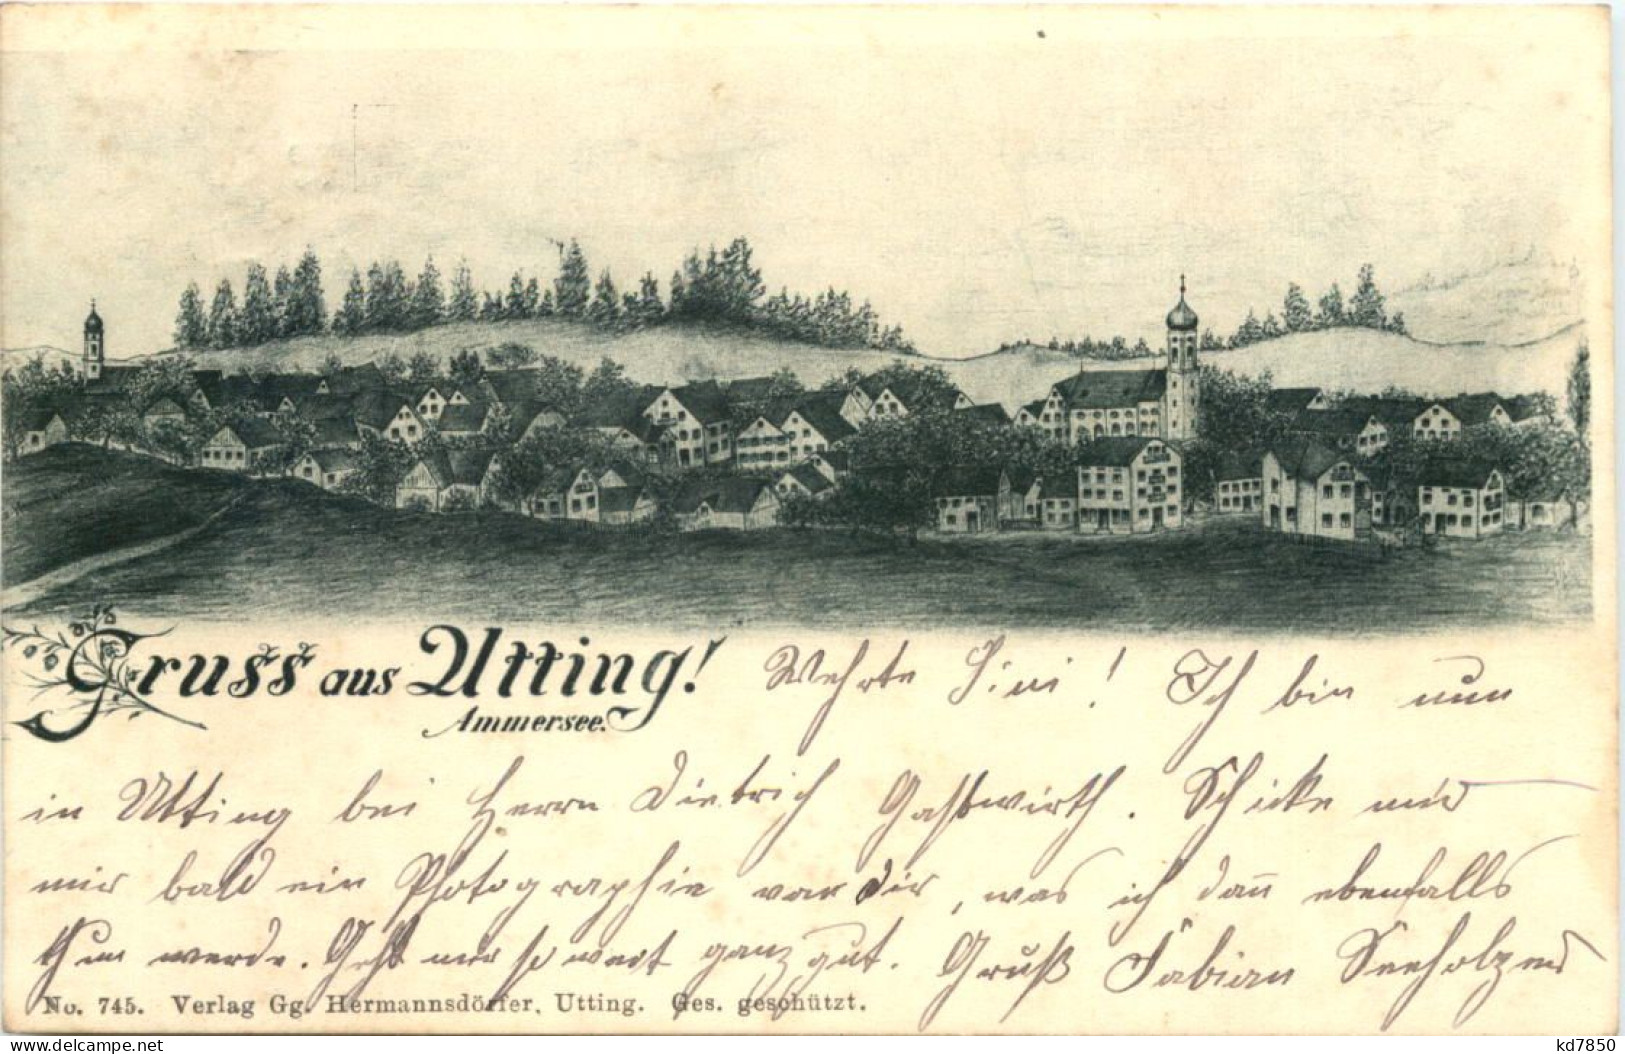 Gruss aus Utting!
Ammersee.
Werte ! Ich bin nun
in Utting bei Herrn Dietrich Gastwirth. Schicke mir
mir bald ein Photographie von dir, was ich dañ ebenfalls
thun werde. Geht mir so weit ganz gut. Gruß Fabian Seeholzer
No. 745. Verlag Gg. Hermannsdörfer, Utting. Ges. geschützt.
kd7850
www.delcampe.net